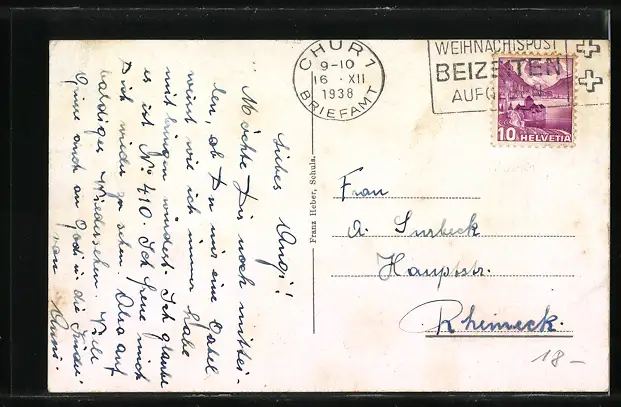 CHUR 1
9-10
16. XII
1938
BRIEFAMT
WEIHNACHTSPOST
BEIZEITEN
AUFG
10 HELVETIA
Franz Heber, Schuls.
Liebes Angi!
Möchte Dir noch mittei-
len, ob Du mir eine Dakel
weist wie ich immer habe
mit bringen würdest. Ich glaube
es ist No 410. Ich freue mich
Dich wieder zu sehen. Also auf
baldiges Wiedersehen. Viele
Grüsse auch an Godi u die Kinder
von Anni.
Frau
A. Surbeck
Hauptstr.
Rheineck.
18-